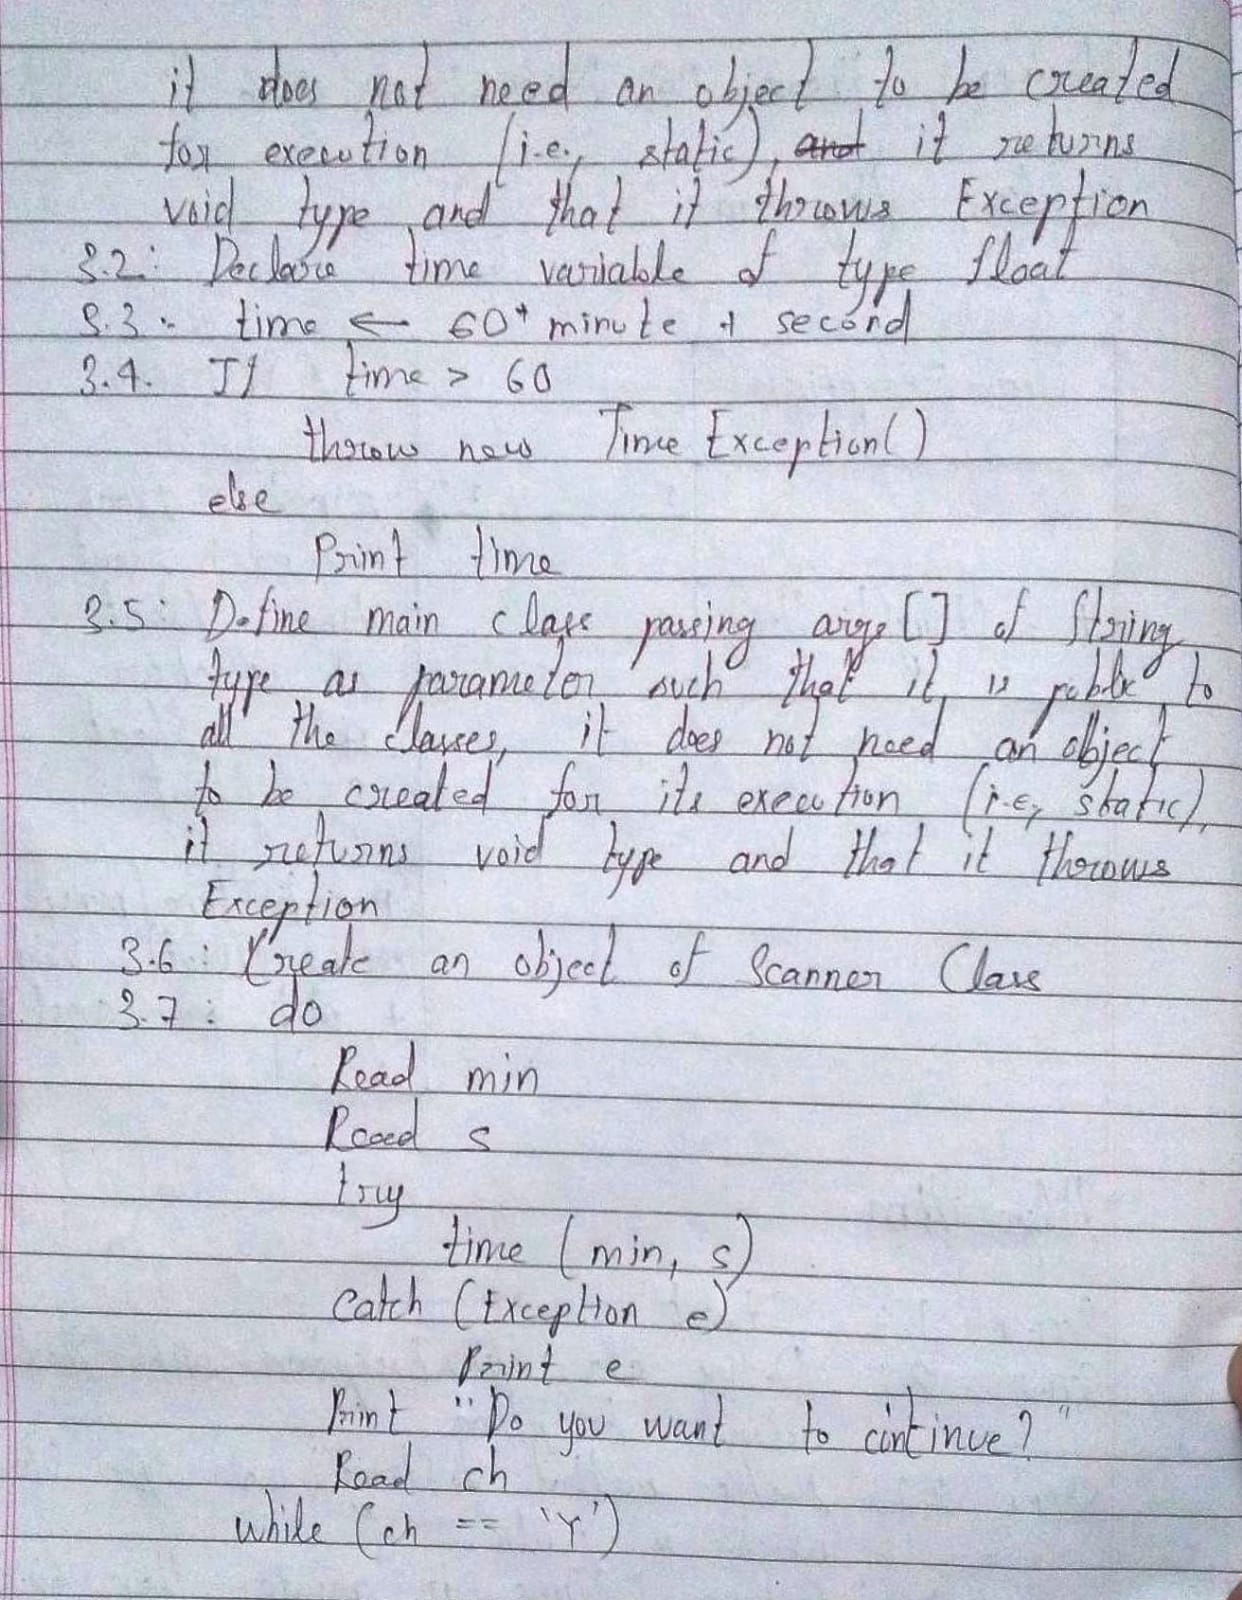 it does not need an object to be created
for execution (i.e., static), and it returns
void type and that it throws Exception
3.2: Declare time variable of type float
3.3:- time ← 60* minute + second
3.4. If time > 60
throw new Time Exception()
else
Print time
3.5: Define main class passing args[] of String
type as parameter such that it is public to
all the classes, it does not need an object
to be created for its execution (i.e, static),
it returns void type and that it throws
Exception
3.6: Create an object of Scanner Class
3.7: do
Read min
Read s
try
time (min, s)
catch (Exception e)
Print e
Print "Do you want to continue?"
Read ch
while (ch == 'Y')